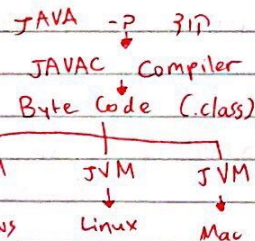 JAVA -P קוד
JAVAC Compiler
Byte Code (.class)
M JVM JVM
ws Linux Mac